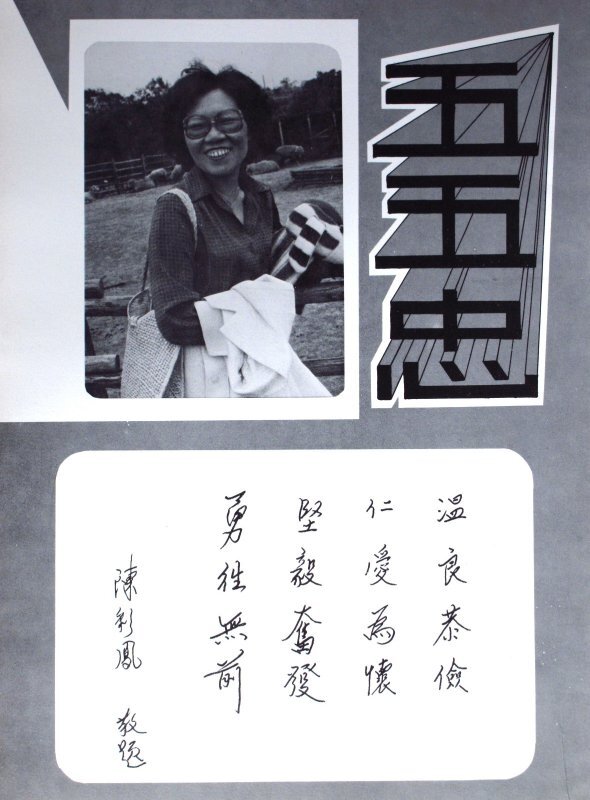 五五忠
溫良恭儉
仁愛為懷
堅毅奮發
勇往無前
陳彩鳳 敬題